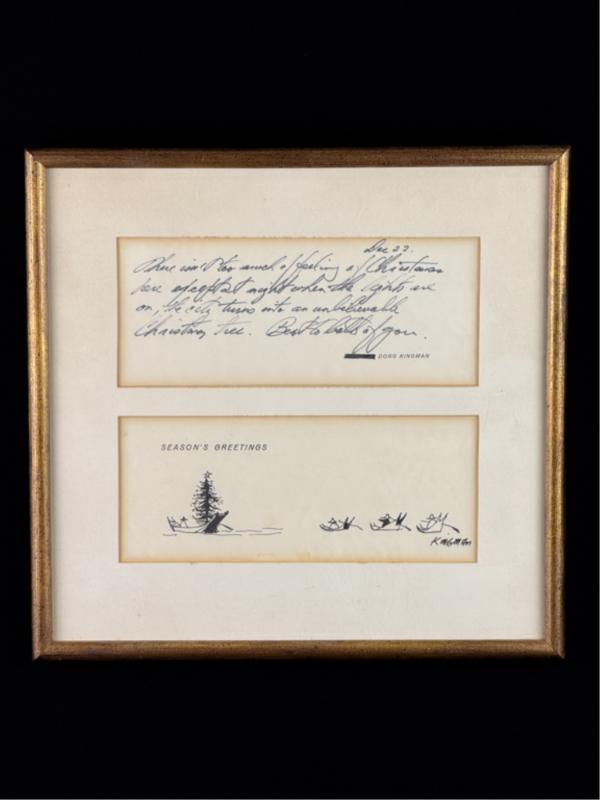 Dec 22.
There isn't too much of feeling of Christmas
here except at night when the lights are
on, the city turns into an unbelievable
Christmas tree. Best to both of you.
DONG KINGMAN
SEASON'S GREETINGS
KINGMAN